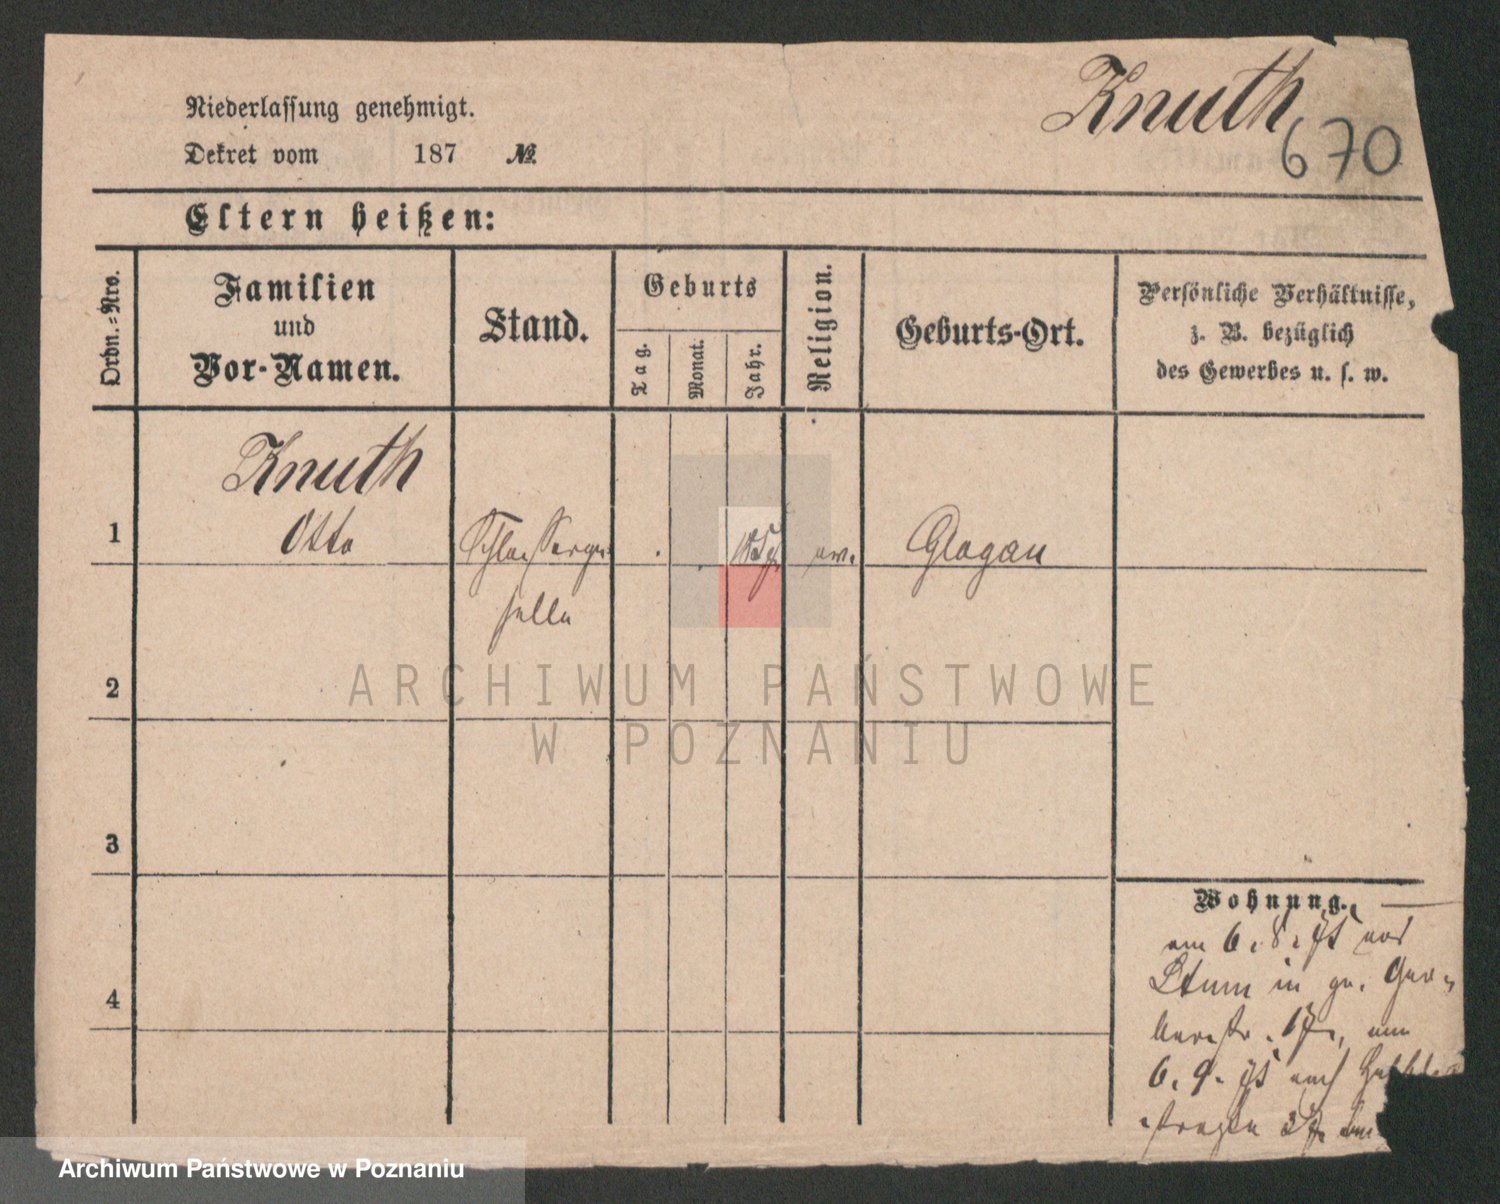 Knuth
670
Niederlassung genehmigt.
Dekret vom 187 №
Eltern heißen:
Ordn.=Nro.
Familien
und
Vor-Namen.
Stand.
Geburts
Tag.
Monat.
Jahr.
Religion.
Geburts-Ort.
Persönliche Verhältnisse,
z. B. bezüglich
des Gewerbes u. s. w.
Knuth
1 Otto Schlosserge- ev. Glogau
selle
2
3
4
Wohnung.
am 6. 8. von
in gr. Ger-
berstr. 17, am
6. 9. nach
strasse
ARCHIWUM PAŃSTWOWE
W POZNANIU
Archiwum Państwowe w Poznaniu